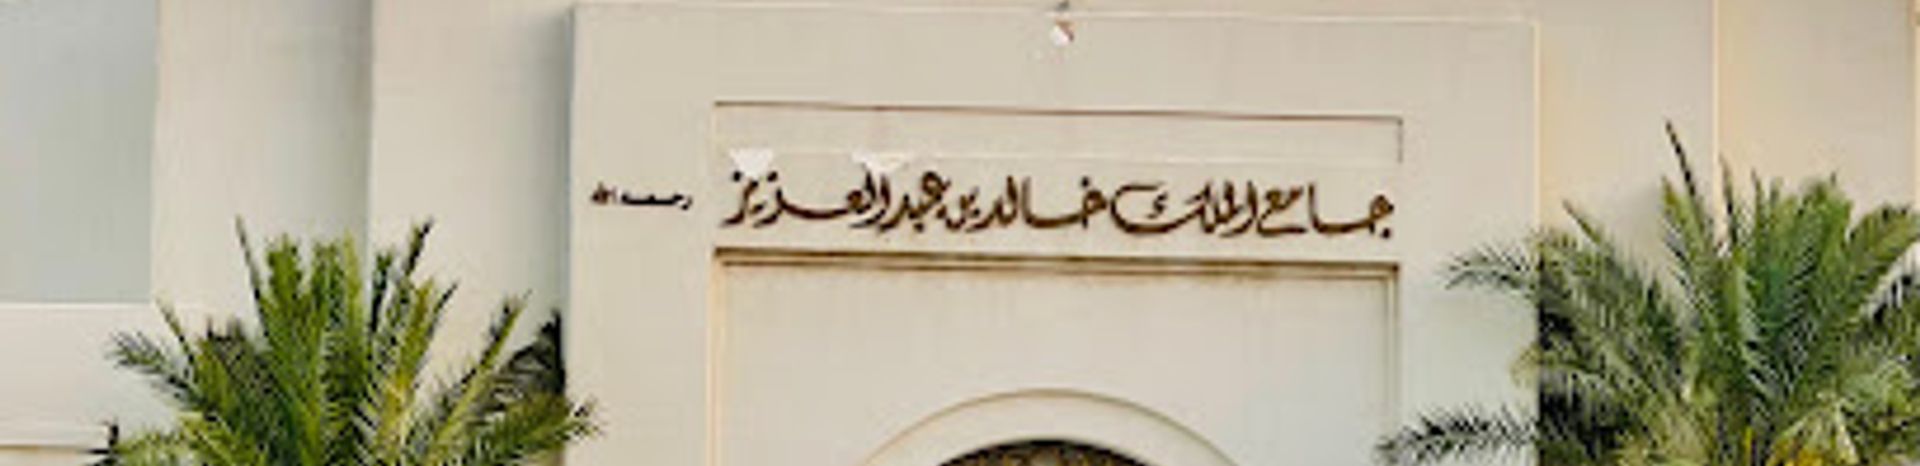 جامع الملك خالد بن عبد العزيز رحمه الله